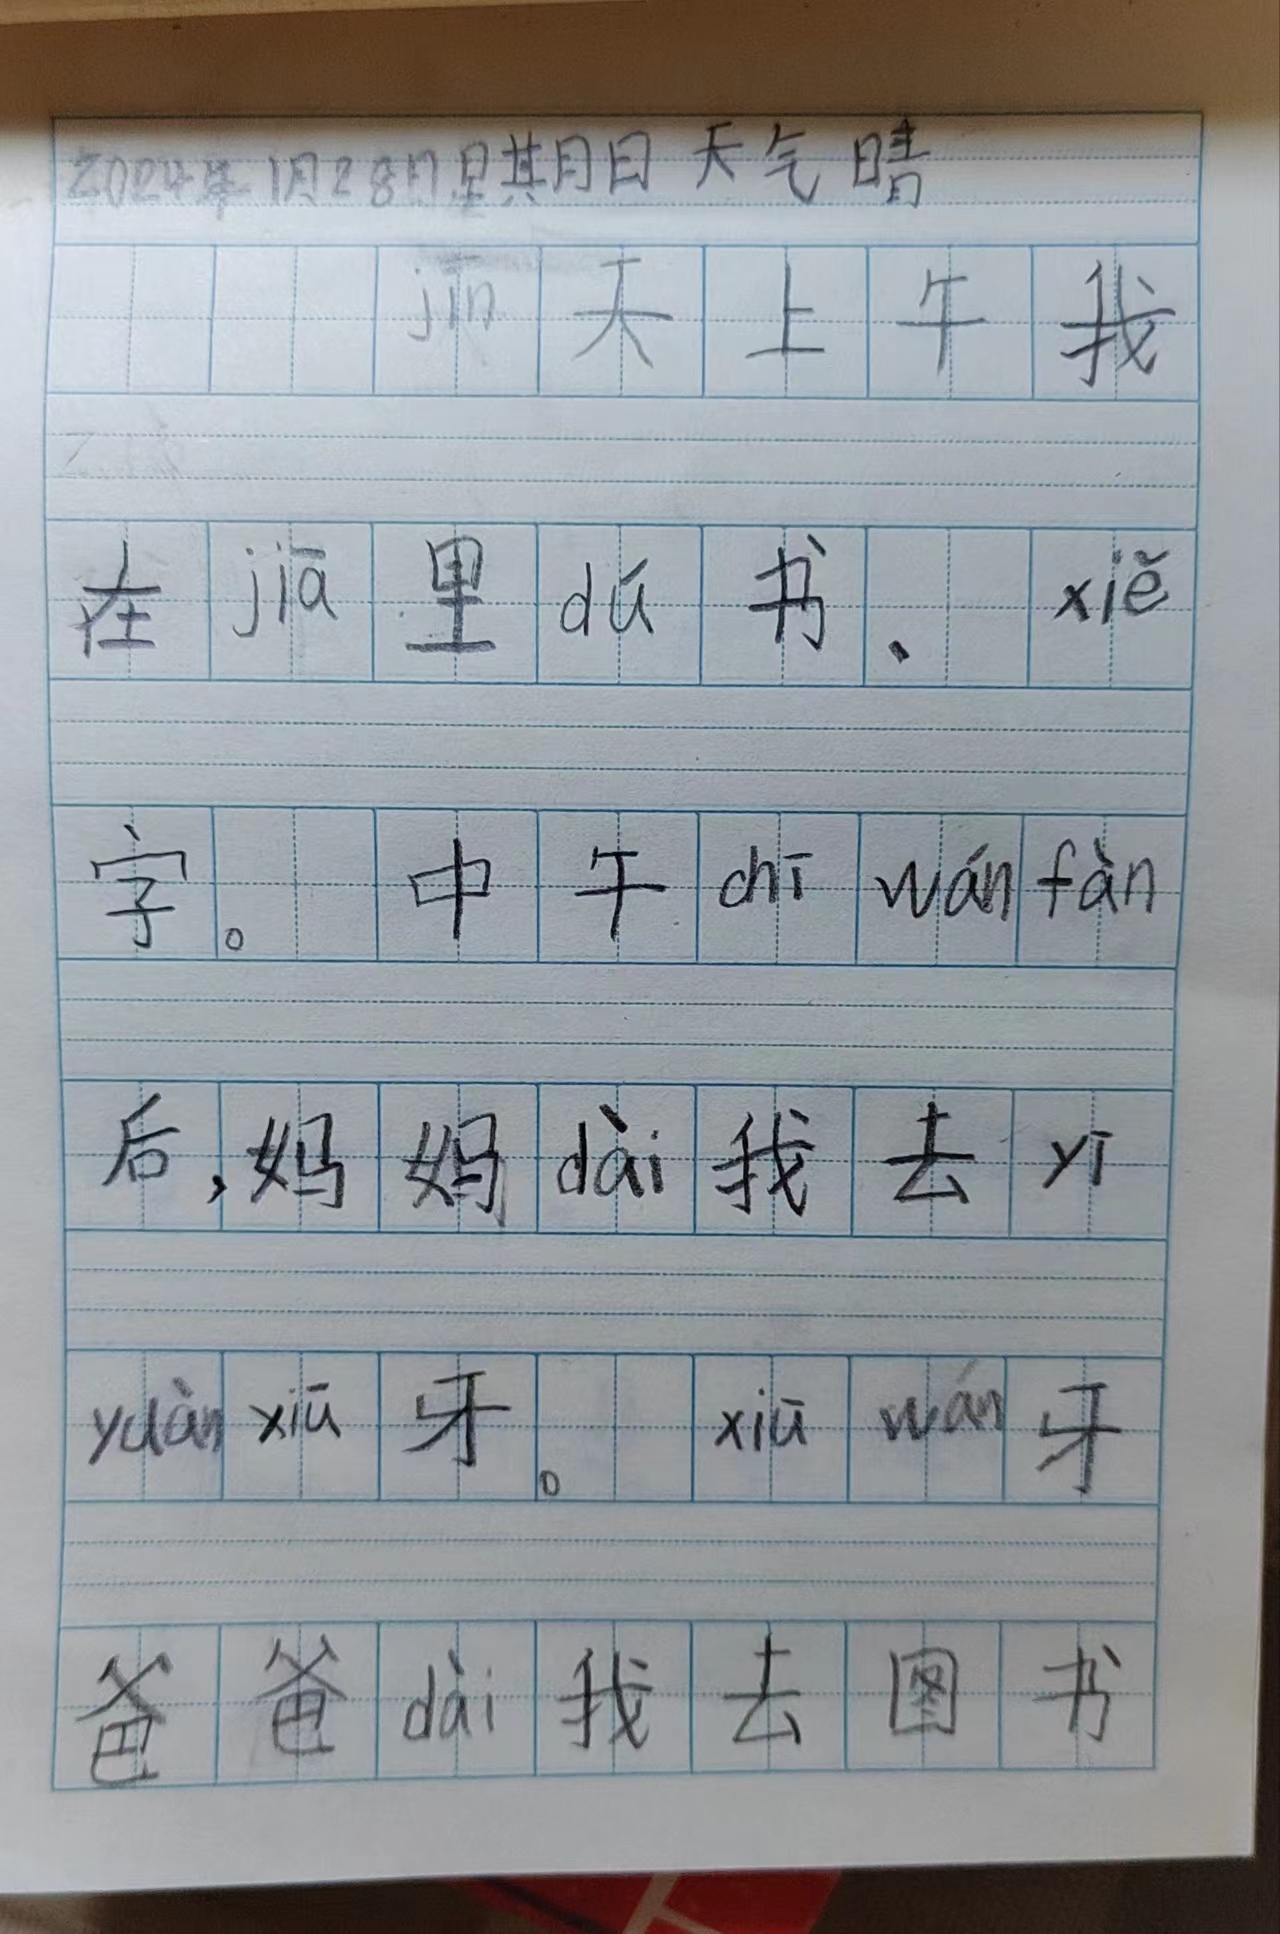 2024年1月28日星期日 天气 晴
jīn天上午我
在jiā里dú书、xiě
字。中午chī wán fàn
后,妈妈dài我去yī
yuàn xiū牙。xiū wán牙
爸爸dài我去图书